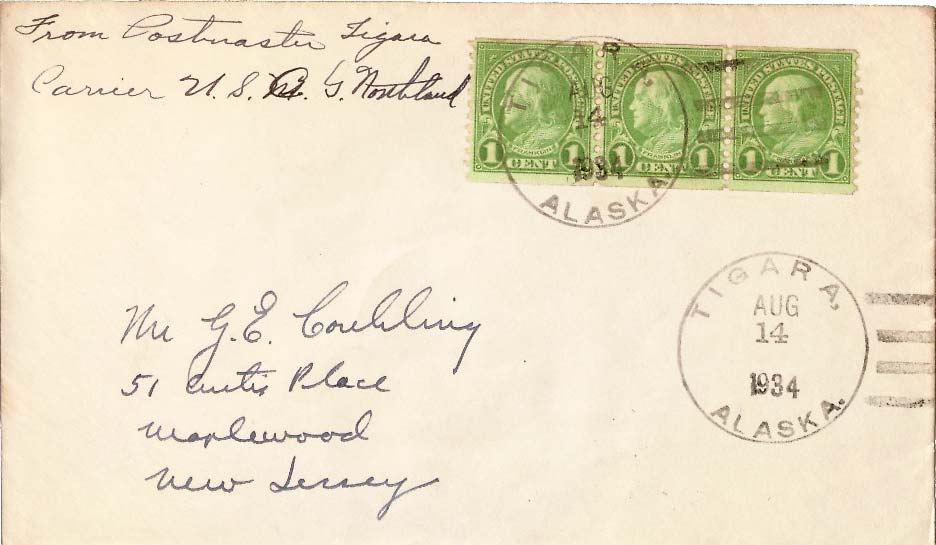 From Postmaster Tigara
Carrier U. S. G. Northland
UNITED STATES POSTAGE
FRANKLIN
1 CENT 1
UNITED STATES POSTAGE
FRANKLIN
1 CENT 1
UNITED STATES POSTAGE
1 CENT 1
TIGARA,
AUG
14
1934
ALASKA.
TIGARA,
AUG
14
1934
ALASKA.
Mr G.E.
51 Curtis Place
Maplewood
New Jersey